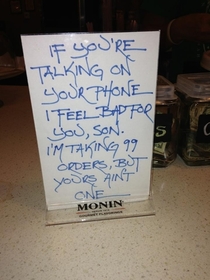 IF YOU'RE
TALKING ON
YOUR PHONE
I FEEL BAD FOR
YOU, SON.
I'M TAKING 99
ORDERS, BUT
YOURS AIN'T
ONE
MONIN
GOURMET FLAVORINGS